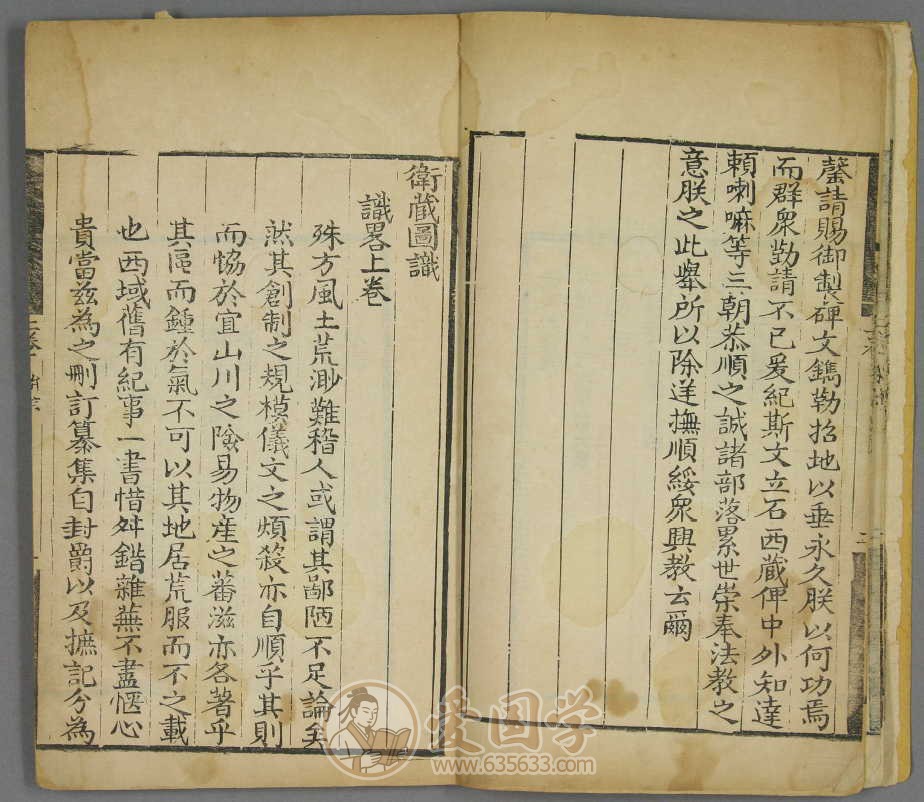 罄請賜御製碑文鐫勒招地以垂永久朕以何功焉
而群衆勤請不已爰紀斯文立石西藏俾中外知達
頼喇嘛等三朝恭順之誠諸部落累世崇奉法教之
意朕之此舉所以除逆撫順綏衆興教云爾
衛藏圖識
識畧上卷
殊方風土荒渺難稽人或謂其鄙陋不足論矣
然其創制之規模儀文之煩殺亦自順乎其則
而恊於宜山川之險易物産之蕃滋亦各著乎
其區而鍾於氣不可以其地居荒服而不之載
也西域舊有紀事一書惜舛錯雜蕪不盡愜心
貴當兹為之刪訂纂集自封爵以及摭記分為
二
上卷
愛国学
www.635633.com